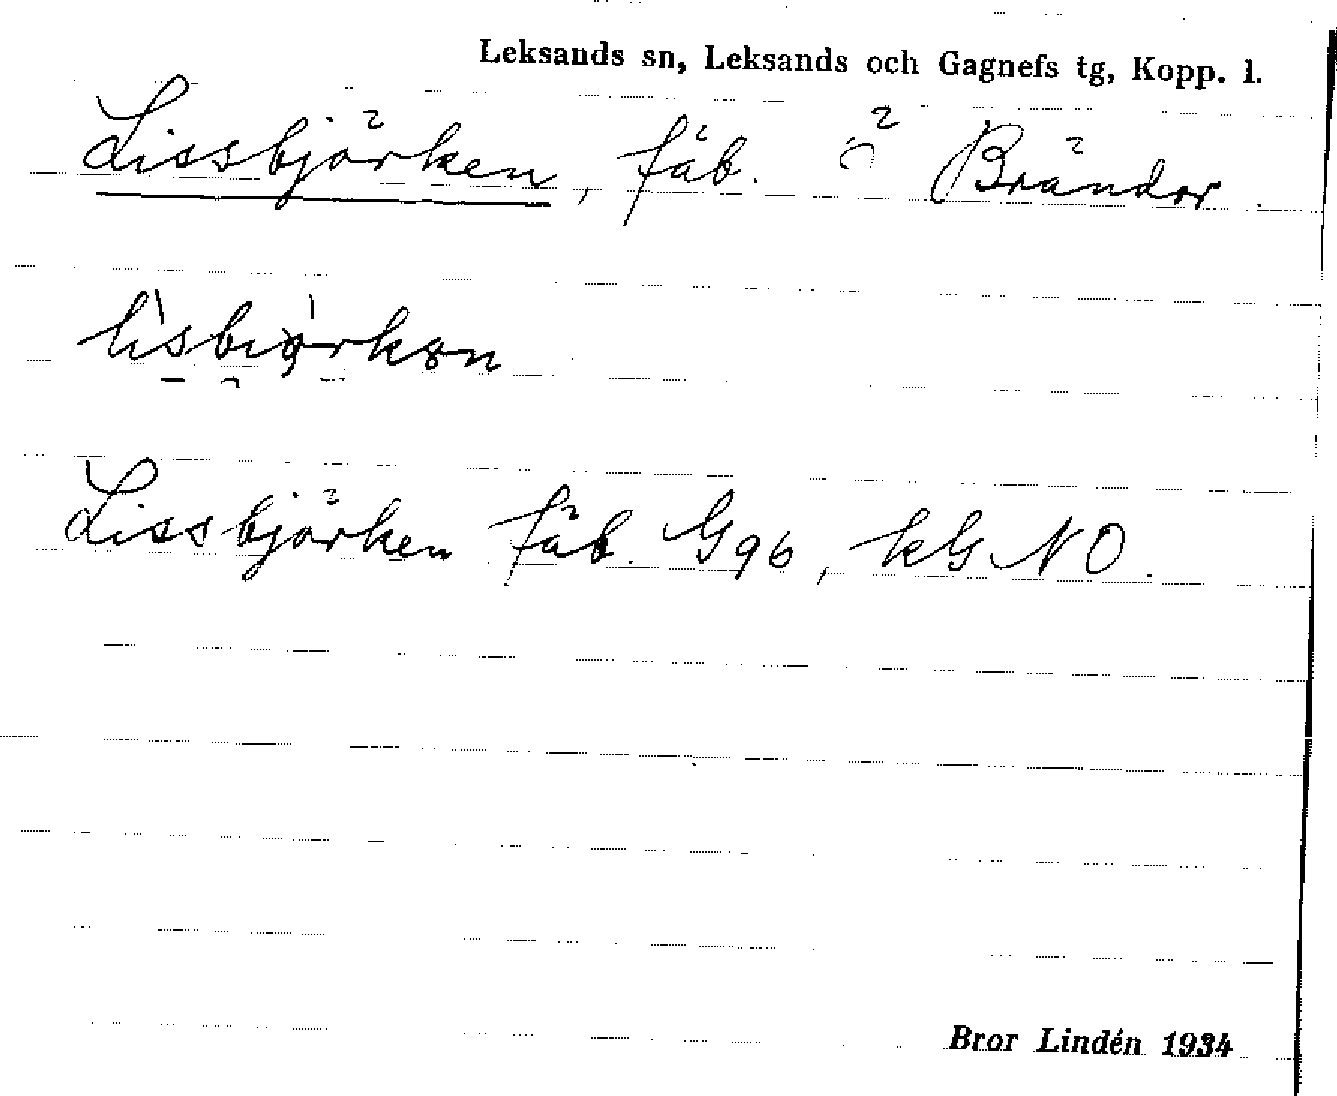 Leksands sn, Leksands och Gagnefs tg, Kopp. l.
Lissbjörken, fäb. ö Brändor.
Lissbjörken fäb. G96, kG NO.
Bror Lindén 1934